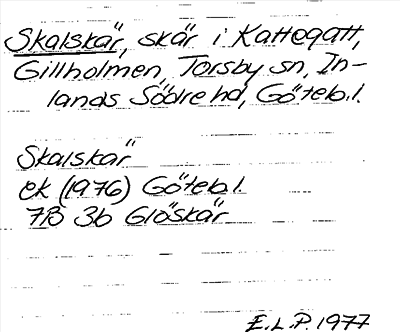 Skalskär, skär i Kattegatt,
Gillholmen, Torsby sn, In-
lands Södre hd, Göteb.l.
Skalskär
ek (1976) Göteb.l.
7B 3b Glöskär
E.L.P. 1977